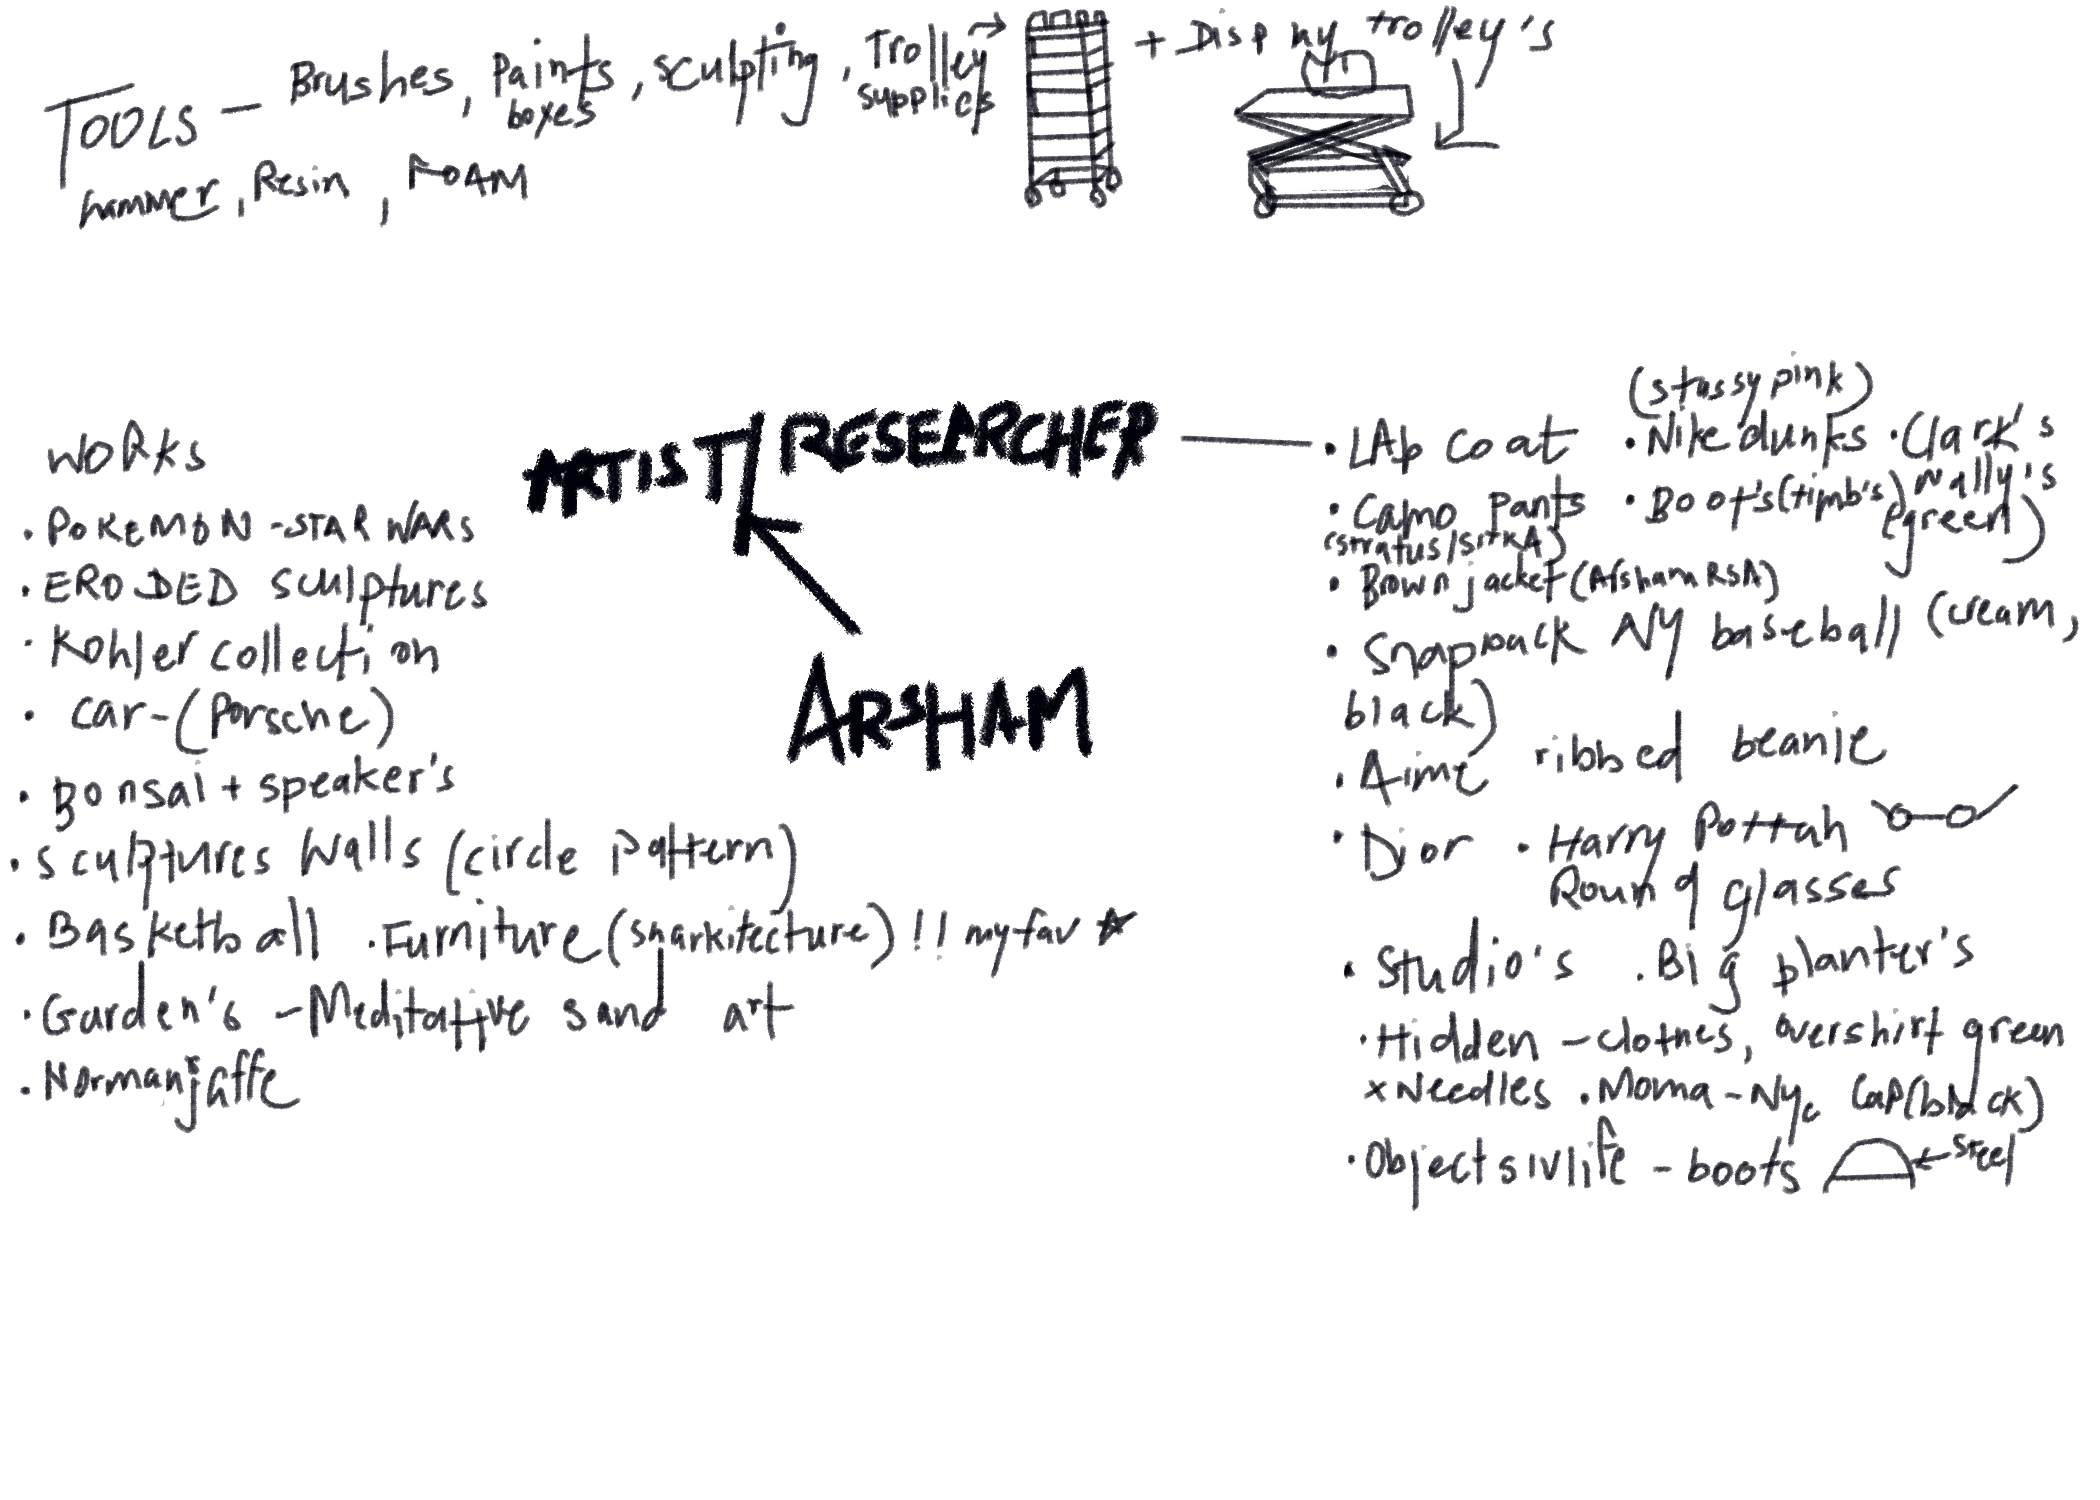 TOOLS - Brushes, Paints boxes, sculpting, Trolley supplies → + Display trolley's
hammer, Resin, FOAM
ARTIST/RESEARCHER
ARSHAM
WORKS
• POKEMON - STAR WARS
• ERODED sculptures
• Kohler collection
• car - (Porsche)
• Bonsai + speaker's
• sculptures Walls (circle pattern)
• Basketball • Furniture (snarkitecture) !! my fav ☆
• Garden's - Meditative sand art
• Norman jaffe
(stussy pink)
• LAb coat • Nike dunks • Clark's
• Camo pants • Boot's (timb's) wally's
(stratus/SITKA) (green)
• Brown jacket (Arsham RSA)
• Snapback NY baseball (cream,
black)
• Aime ribbed beanie
• Dior • Harry Pottah
Round glasses
• Studio's • Big planter's
• Hidden - clothes, overshirt green
x Needles • Moma - Nyc Cap (black)
• Objects iv life - boots ← steel